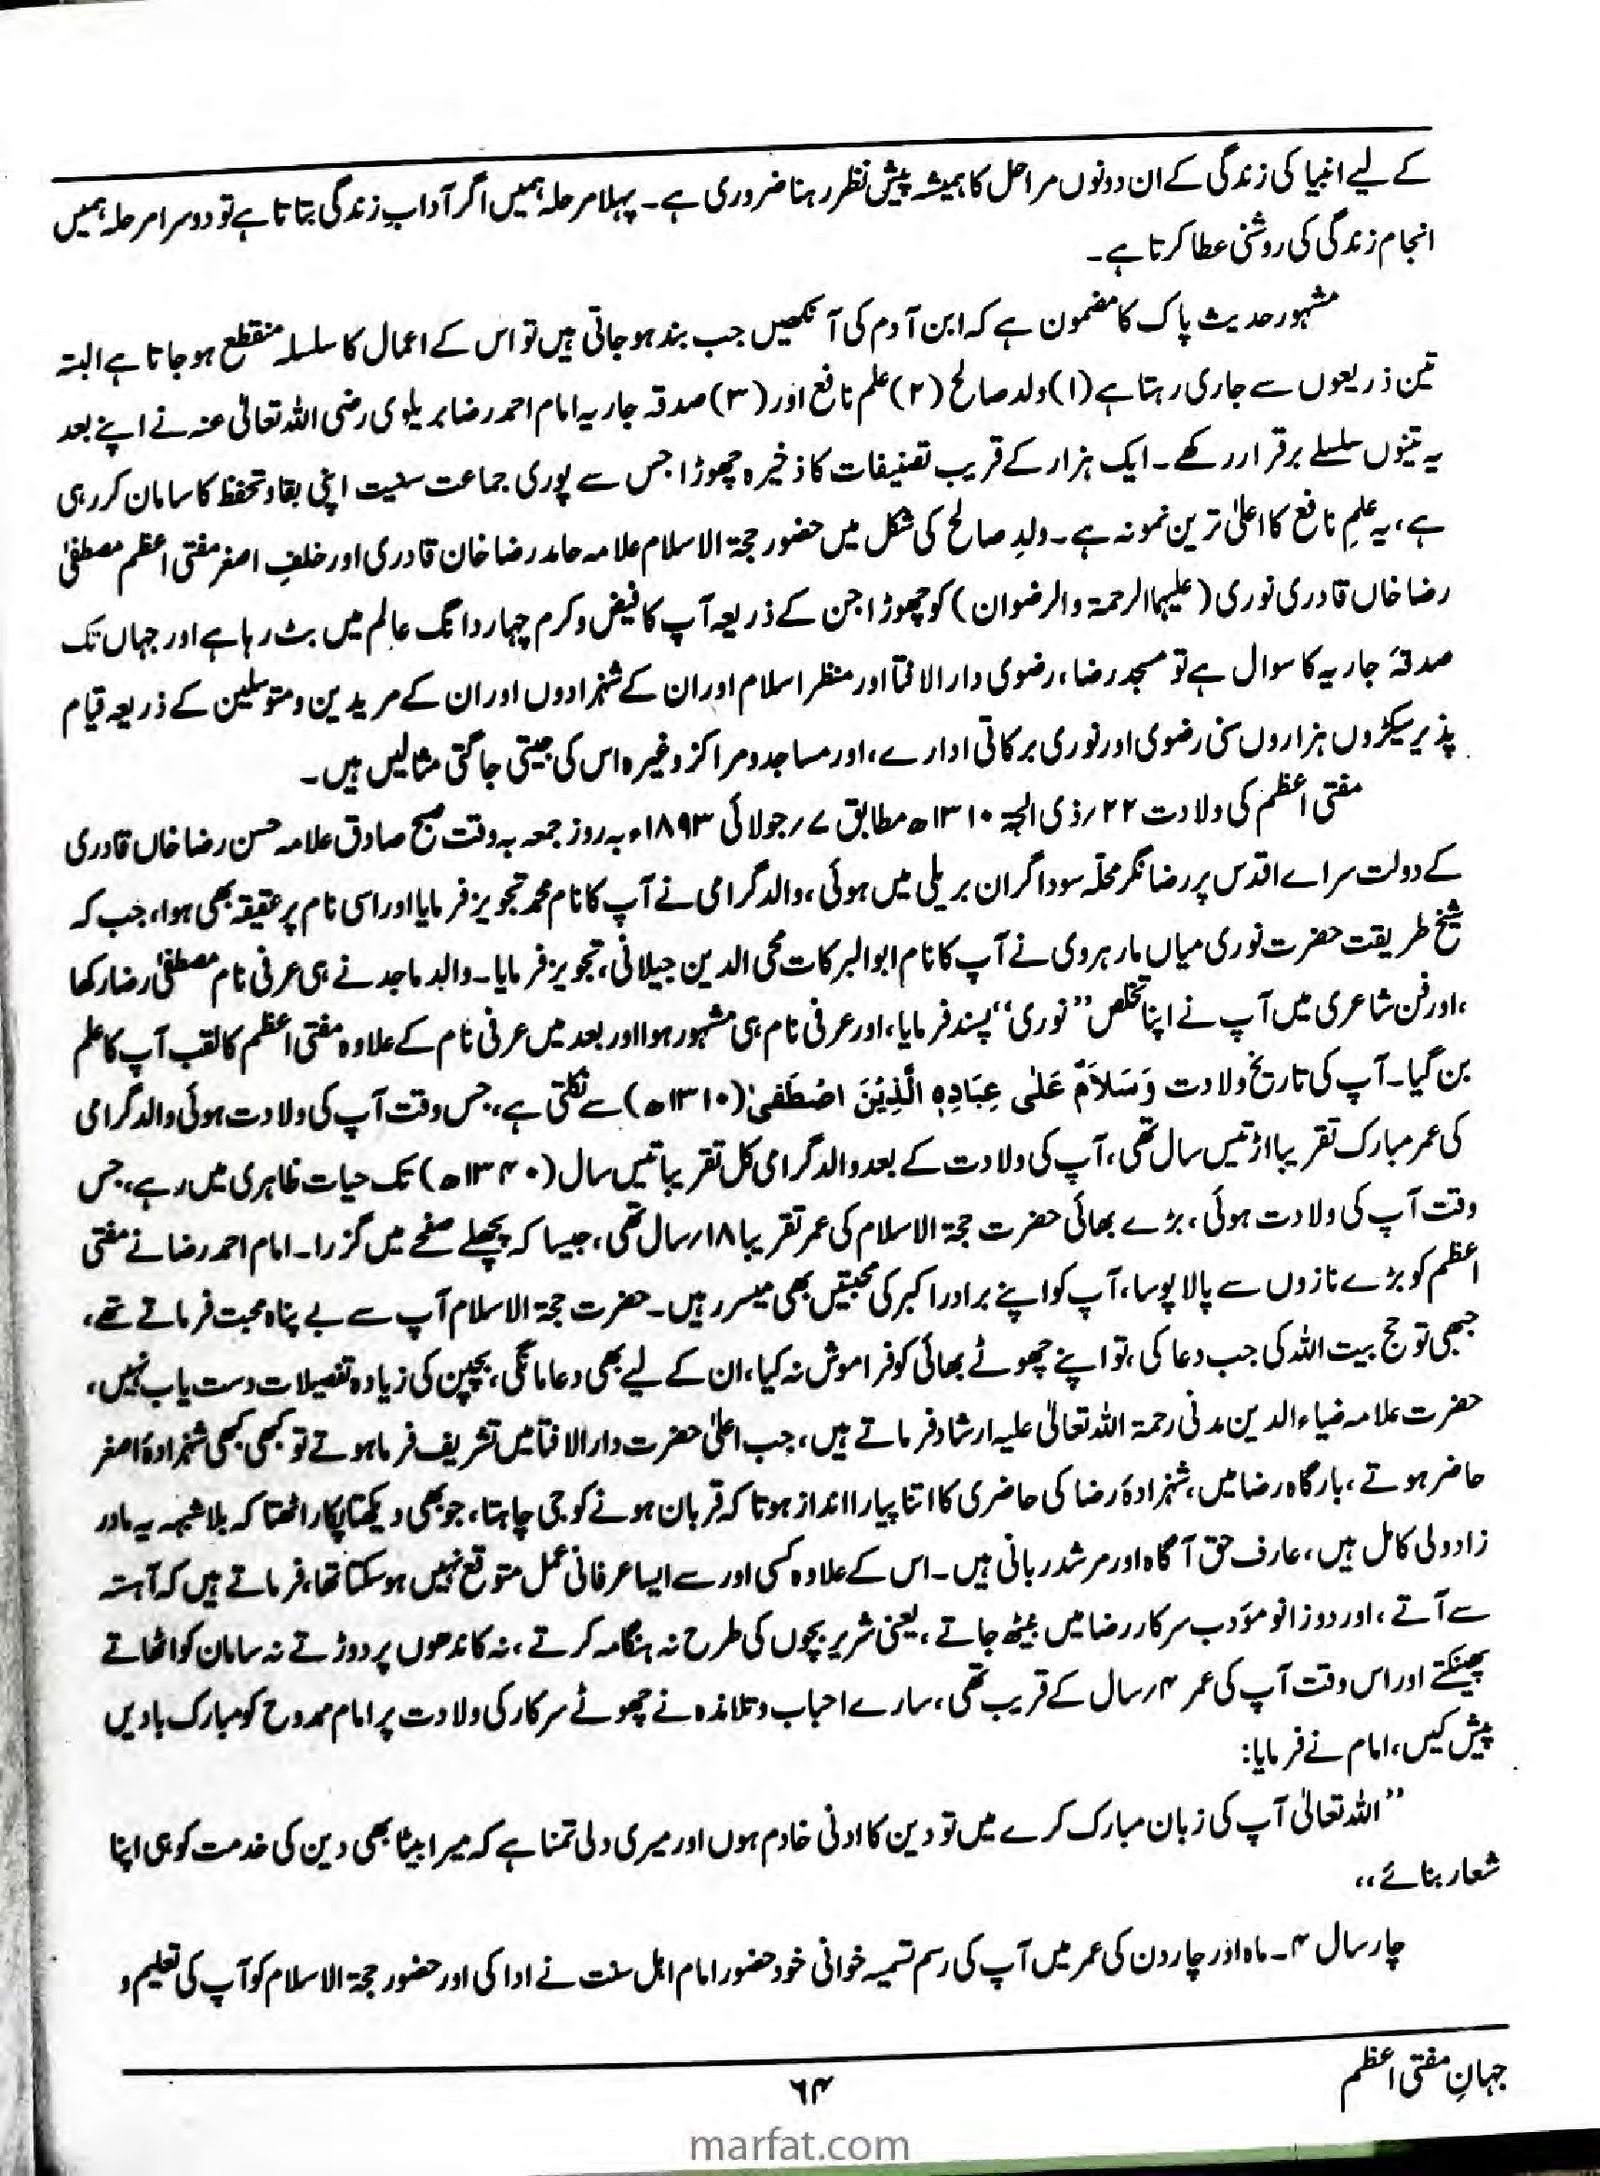 کے لیے انبیا کی زندگی کے ان دونوں مراحل کا ہمیشہ پیش نظر رہنا ضروری ہے۔ پہلا مرحلہ ہمیں اگر آدابِ زندگی بتاتا ہے تو دوسرا مرحلہ ہمیں
انجام زندگی کی روشنی عطا کرتا ہے۔
مشہور حدیث پاک کا مضمون ہے کہ ابن آدم کی آنکھیں جب بند ہو جاتی ہیں تو اس کے اعمال کا سلسلہ منقطع ہو جاتا ہے البتہ
تین ذریعوں سے جاری رہتا ہے (۱) ولد صالح (۲) علم نافع اور (۳) صدقہ جاریہ امام احمد رضا بریلوی رضی اللہ تعالیٰ عنہ نے اپنے بعد
یہ تینوں سلسلے برقرار رکھے۔ ایک ہزار کے قریب تصنیفات کا ذخیرہ چھوڑا جس سے پوری جماعت سنیت اپنی بقا و تحفظ کا سامان کر رہی
ہے، یہ علمِ نافع کا اعلیٰ ترین نمونہ ہے۔ ولدِ صالح کی شکل میں حضور حجۃ الاسلام علامہ حامد رضا خان قادری اور خلفِ اصغر مفتی اعظم مصطفیٰ
رضا خاں قادری نوری (علیہما الرحمۃ والرضوان) کو چھوڑا جن کے ذریعہ آپ کا فیض و کرم چہار دانگ عالم میں بٹ رہا ہے اور جہاں تک
صدقۂ جاریہ کا سوال ہے تو مسجد رضا، رضوی دارالافتا اور منظر اسلام اور ان کے شہزادوں اور ان کے مریدین و متوسلین کے ذریعہ قیام
پذیر سیکڑوں ہزاروں سنی رضوی اور نوری برکاتی ادارے، اور مساجد و مراکز وغیرہ اس کی جیتی جاگتی مثالیں ہیں۔
مفتی اعظم کی ولادت ۲۲؍ ذی الحجۃ ۱۳۱۰ھ مطابق ۷؍ جولائی ۱۸۹۳ء بہ روز جمعہ بہ وقت صبح صادق علامہ حسن رضا خاں قادری
کے دولت سراے اقدس پر رضا نگر محلّہ سوداگران بریلی میں ہوئی، والد گرامی نے آپ کا نام محمد تجویز فرمایا اور اسی نام پر عقیقہ بھی ہوا، جب کہ
شیخ طریقت حضرت نوری میاں مارہروی نے آپ کا نام ابوالبرکات محی الدین جیلانی، تجویز فرمایا۔ والد ماجد نے ہی عرفی نام مصطفیٰ رضا رکھا
،اور فن شاعری میں آپ نے اپنا تخلص ’’نوری‘‘ پسند فرمایا، اور عرفی نام ہی مشہور ہوا اور بعد میں عرفی نام کے علاوہ مفتی اعظم کا لقب آپ کا علم
بن گیا۔ آپ کی تاریخ ولادت وَسَلاَمٌ عَلٰی عِبَادِہِ الَّذِیْنَ اصْطَفیٰ (۱۳۱۰ھ) سے نکلتی ہے، جس وقت آپ کی ولادت ہوئی والد گرامی
کی عمر مبارک تقریبا اڑتیس سال تھی، آپ کی ولادت کے بعد والد گرامی کل تقریبا تیس سال (۱۳۴۰ھ) تک حیات ظاہری میں رہے، جس
وقت آپ کی ولادت ہوئی، بڑے بھائی حضرت حجۃ الاسلام کی عمر تقریبا ۱۸؍ سال تھی، جیسا کہ پچھلے صفحے میں گزرا۔ امام احمد رضا نے مفتی
اعظم کو بڑے نازوں سے پالا پوسا، آپ کو اپنے برادر اکبر کی محبتیں بھی میسر رہیں۔ حضرت حجۃ الاسلام آپ سے بے پناہ محبت فرماتے تھے،
جبھی تو حج بیت اللہ کی جب دعا کی، تو اپنے چھوٹے بھائی کو فراموش نہ کیا، ان کے لیے بھی دعا مانگی، بچپن کی زیادہ تفصیلات دست یاب نہیں،
حضرت علامہ ضیاء الدین مدنی رحمۃ اللہ تعالیٰ علیہ ارشاد فرماتے ہیں، جب اعلیٰ حضرت دارالافتا میں تشریف فرما ہوتے تو کبھی کبھی شہزادۂ اصغر
حاضر ہوتے، بارگاہ رضا میں، شہزادۂ رضا کی حاضری کا اتنا پیارا انداز ہوتا کہ قربان ہونے کو جی چاہتا، جو بھی دیکھتا پکار اٹھتا کہ بلا شبہہ یہ مادر
زاد ولی کامل ہیں، عارف حق آگاہ اور مرشد ربانی ہیں۔ اس کے علاوہ کسی اور سے ایسا عرفانی عمل متوقع نہیں ہو سکتا تھا، فرماتے ہیں کہ آہستہ
سے آتے، اور دوزانو مؤدب سرکار رضا میں بیٹھ جاتے، یعنی شریر بچوں کی طرح نہ ہنگامہ کرتے، نہ کاندھوں پر دوڑتے نہ سامان کو اٹھاتے
پھینکتے اور اس وقت آپ کی عمر ۴؍ سال کے قریب تھی، سارے احباب و تلامذہ نے چھوٹے سرکار کی ولادت پر امام ممدوح کو مبارک بادیں
پیش کیں، امام نے فرمایا:
’’اللہ تعالیٰ آپ کی زبان مبارک کرے میں تو دین کا ادنی خادم ہوں اور میری دلی تمنا ہے کہ میرا بیٹا بھی دین کی خدمت کو ہی اپنا
شعار بنائے،،
چار سال ۴۔ ماہ اور چار دن کی عمر میں آپ کی رسم تسمیہ خوانی خود حضور امام اہل سنت نے ادا کی اور حضور حجۃ الاسلام کو آپ کی تعلیم و
جہانِ مفتی اعظم
۶۴
marfat.com